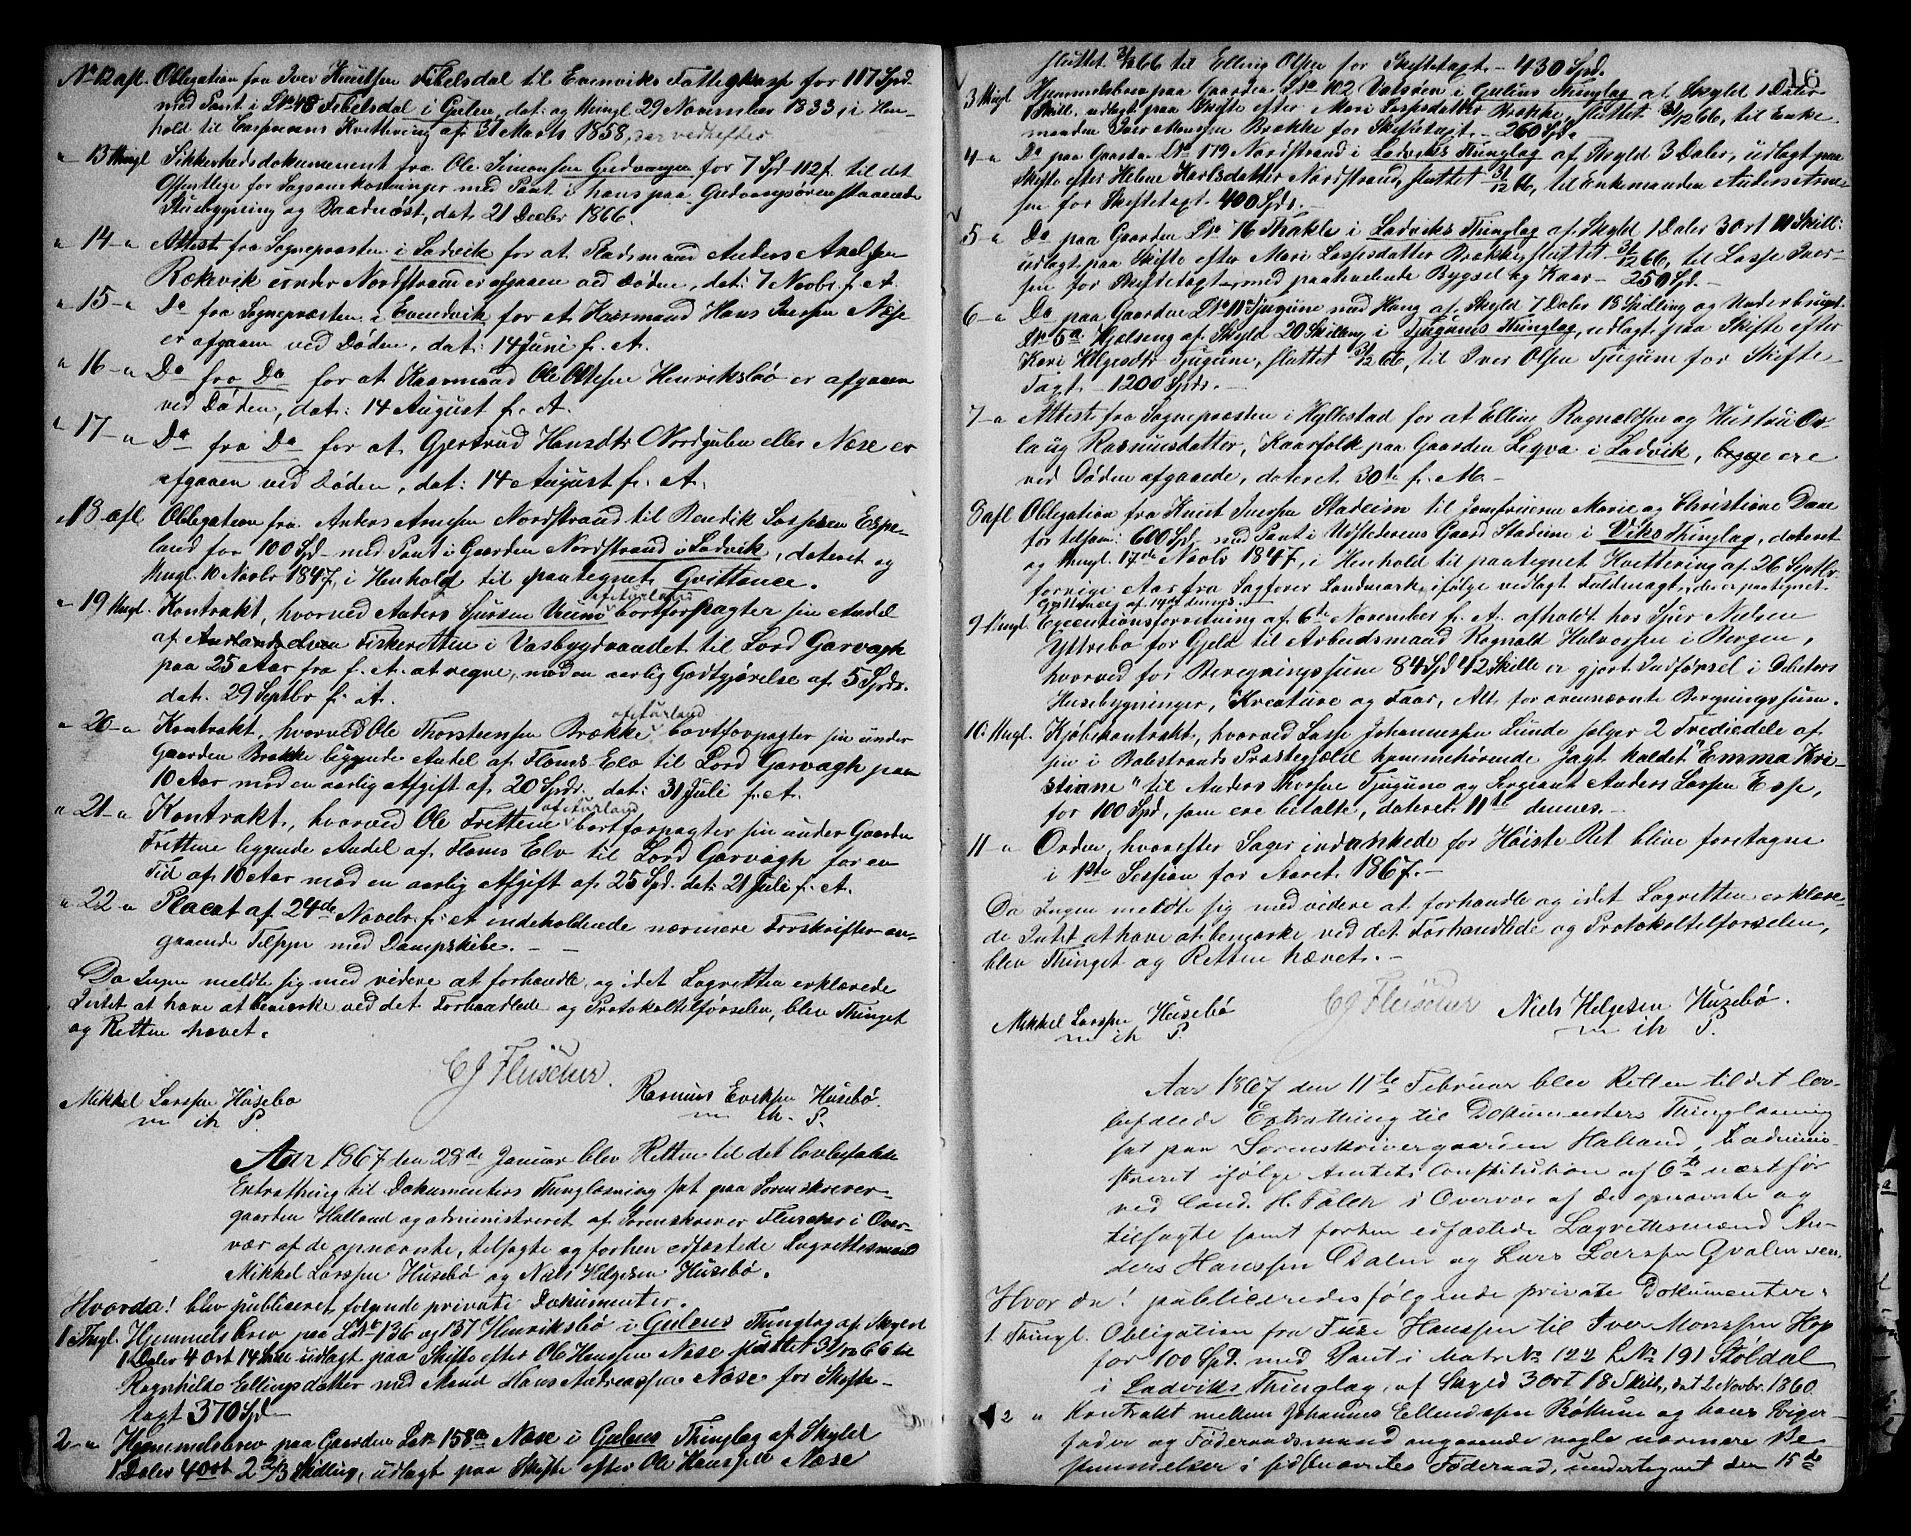 No 12 afl. Obligation fra Iver Knutsen Tibelsdal til Evenviks Fattigkasse for 117 Spd.
med Pant i Lno 48 Tibelsdal i Gulen, dat. og thingl. 29 November 1833, i Hen-
hold til Cassererens Kvittering af 31 Marts 1858, der vedhefter
" 13 thingl Sikkerhedsdokument fra Ole Simonsen Gudvangen for 7 Spd 112 f. til det
Offentlige for Sagsomkostninger med Pant i hans paa Gudvangsøren staaende
Stuebygning og Baadnøst, dat. 21 Decbr 1866.
" 14 - " Attest fra Sognepræsten i Ladvik for at Pladsmand Anders Axelsen
Rækvik under Nordstrand er afgaaen ved Døden, dat: 7 Novbr. f. A.
" 15 - " Do fra Sognepræsten i Evindvik for at Kaarmand Hans Jensen Næse
er afgaaen ved Døden, dat: 14 Juni f. A.
" 16 - " Do fra Do for at Kaarmand Ole Olsen Henriksbø er afgaaen
ved Døden, dat: 14 August f. A.
" 17 - " Do fra Do for at Gjertrud Hansdtr Nordgulen eller Næse er
afgaaen ved Døden, dat: 14 August f. A.
" 18 afl Obligation fra Anders Arnesen Nordstrand til Bendik Lassesen Espe-
land for 100 Spd med Pant i Gaarden Nordstrand i Ladvik, dateret og
thingl. 10 Novbr 1847, i Henhold til paategnet Qvittance.
" 19 thingl. Kontrakt, hvorved Anders Sjursen Vinne af Aurland bortforpagter sin Andel
af Aurlandselven Fiskeretten i Vasbygdvandet til Lord Garvagh
paa 25 Aar fra f. A. at regne, mod en aarlig Godtgjørelse af 5 Spdr.
dat. 29 Septbr f. A.
" 20 - " Kontrakt, hvorved Ole Thorsteinsen Brække af Aurland bortforpagter sin under
Gaarden Brække liggende Andel af Flams Elv til Lord Garvagh paa
10 Aar mod en aarlig Afgift af 20 Spdr. dat: 31 Juli f. A.
" 21 - " Kontrakt, hvorved Ole Frettene af Aurland bortforpagter sin under Gaarden
Frettene liggende Andel af Flams Elv til Lord Garvagh for en
Tid af 10 Aar mod en aarlig Afgift af 25 Spd. dat: 21 Juli f. A.
" 22 - " Placat af 24de Novbr. f. A. indeholdende nærmere Forskrifter an-
gaaende Tilsyn med Dampskibe. -
Da Ingen meldte sig med videre at forhandle, og idet Lagretten erklærede
Intet at have at bemærke ved det Forhandlede og Protokoltilførselen, blev Thinget
og Retten hævet.
CJ Fleischer
Mikkel Larssen Husebø
m ih P.
Rasmus Eriksen Husebø.
m ih. P.
Aar 1867 den 28de Januar blev Retten til det lovbefalede
Extrathing til Dokumenters Thinglæsning sat paa Sorenskriver-
gaarden Halland og administreret af Sorenskriver Fleischer i Over-
vær af de opnævnte, tilsagte og forhen edfæstede Lagrettesmænd
Mikkel Larssen Husebø og Niels Helgesen Husebø.
Hvorda! blev publiceret følgende private Dokumenter.
1 Thingl. Hjemmelsbrev paa Lno 136 og 137 Henriksbø i Gulens Thinglag af Skyld
1 Daler 4 Ort 14 udlagt paa Skifte efter Ole Hanssen Næse sluttet 3/12 66 til
Ragnhilde Ellingsdatter med Mand Hans Andreassen Næse for Skifte-
tagt 370 Spd.
2 - " Hjemmelsbrev paa Gaarden Lno 158a Næse i Gulens Thinglag af Skyld
1 Daler 4 ort 2 2/3 Skilling, udlagt paa Skifte efter Ole Hanssen Næse
16
sluttet 3/12 66 til Elling Olsen for Skiftetagt - 430 Spd.
3 thingl Hjemmelsbrev paa Gaarden Lno 102 Vatsøen i Gulens Thinglag af Skyld 1 Daler
1 Skill. udlagt paa Skifte efter Mari Lassesdatter Brække, sluttet 3/12 66, til Enke-
manden Iver Monsen Brække for Skiftetagt - 260 Spd.
4 - " Do paa Gaarden Lno 179 Nordstrand i Ladviks Thinglag af Skyld 3 Daler, udlagt paa
Skifte efter Helene Karlsdatter Nordstrand, sluttet 3/12 66, til Enkemanden Anders Arne-
sen for Skiftetagt 400 Spdr. -
5 - " Do paa Gaarden Lno 76 Takle i Ladviks Thinglag af Skyld 1 Daler 3 ort 11 Skill:
udlagt paa Skifte efter Mari Lassesdatter Brække, sluttet 3/12 66, til Lasse Iver-
sen for Skiftetagt med paahvilende Bygsel og Kaar - 250 Spd. -
6 - " Do paa Gaarden Lno 11a Tjugum med Hang af Skyld 7 Daler 18 Skilling og Underbruget
Lno 5a Hjelseng af Skyld 20 Skilling i Tjugums Thinglag, udlagt paa Skifte efter
Kari Helgesdtr Tjugum, sluttet 3/12 66, til Iver Olsen Tjugum for Skifte-
Tagt - 1200 Spdr. -
7 - " Attest fra Sognepræsten i Hyllestad for at Elling Ragnaldsen og Hustru Or-
laug Rasmusdatter, Kaarfolk paa Gaarden Leqva i Ladvik, begge ere
ved Døden afgaaede, dateret 30te f. M. -
8 afl Obligation fra Knut Jensen Stadeim til Jomfruerne Marie og Christiane Daae
for tilsam: 600 Spd. med Pant i Udstederens Gaard Stadeim i Viks Thinglag, dateret
og thingl. 17de Novbr 1847, i Henhold til paategnet Kvittering af 26 Septbr.
forrige Aar fra Sagfører Landmark, ifølge vedlagt Fuldmagt, der er paategnet
Qvittering af 14de dennes. -
9 thingl. Executionsforretning af 6te November f. A. afholdt hos Sjur Nielsen
Yttrebø for Gjeld til Arbeidsmand Ragnald Halvorsen i Bergen,
hvorved for Beregningssum 84 Spd 42 Skill er gjort Indførsel i Debitors
Husebygninger, Kreature og Faar, Alt for ovennævnte Beregningssum.
10 thingl. Kjøbekontrakt, hvorved Lasse Johannesen Lunde sælger 2 Trediedele af
sin i Balestrands Præstegjæld hjemmehørende Jagt kaldet "Emma Kri-
stiane" til Anders Thorsen Tjugum og Sergeant Anders Larsen Esse,
for 100 Spd, som ere betalte, dateret 11te dennes. -
11 - " Orden, hvorefter Sager indankede for Høieste Ret blive foretagne
i 1ste Session for Aaret 1867. -
Da Ingen meldte sig med videre at forhandle og idet Lagretten erklære-
de Intet at have at bemærke ved det Forhandlede og Protokoltilførselen,
blev Thinget og Retten hævet. -
Mikkel Larssen Husebø
m ih P.
CJ Fleischer
Niels Helgesen Husebø.
m ih P.
Aar 1867 den 11te Februar blev Retten til det lov-
befalede Extrathing til Dokumenters Thinglæsning
sat paa Sorenskrivergaarden Halland, admini-
streret ifølge Amtets Constitution af 6te næstfør
ved Cand. H. Falck i Overvær af de opnævnte og
tilsagte samt forhen edfæstede Lagrettesmænd An-
ders Hanssen Dalen og Lars Larssen Qvalen
Hvor da! publiceredes følgende private Dokumenter:
1. Thingl. Obligation fra Ture Hanssen til Iver Monssen Hop
for 100 Spd. med Pant i Matr No 122 L No 191 Støldal
i Ladviks Thinglag, af Skyld 3 Ort 18 Skill., dat 2 Novbr. 1860.
2 " Kontrakt mellem Johannes Ellendssen Bøtun og hans Sviger-
fader og Føderaadsmand angaaende nogle nærmere Be-
stemmelser i sidstnævntes Føderaad, undertegnet den 15de